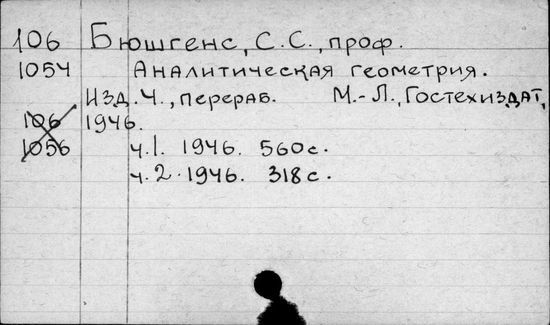 106 Бюшгенс, С.С., проф.
1054 Аналитическая геометрия.
Изд. 4., перераб. М.-Л., Гостехиздат,
106 1946.
1056 ч.1. 1946. 560 с.
ч.2. 1946. 318 с.